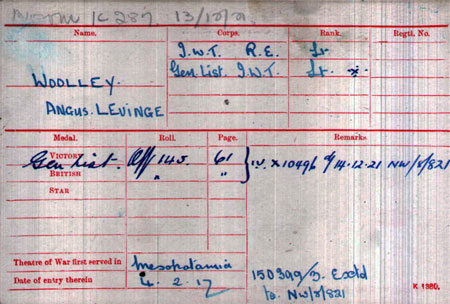 13/12/21
Name. Corps. Rank. Regtl. No.
I.W.T. R.E. Lt.
Gen List. I.W.T. Lt.
WOOLLEY.
ANGUS. LEVINGE
Medal. Roll. Page. Remarks.
VICTORY Gen List. Off 145. 61 IV X 1049b d/14-12-21 NW/8/821
BRITISH " "
STAR
Theatre of War first served in Mesopotamia
Date of entry therein 4. 2. 17
150399/3. Exetd
to NW/8/821
K 1380.